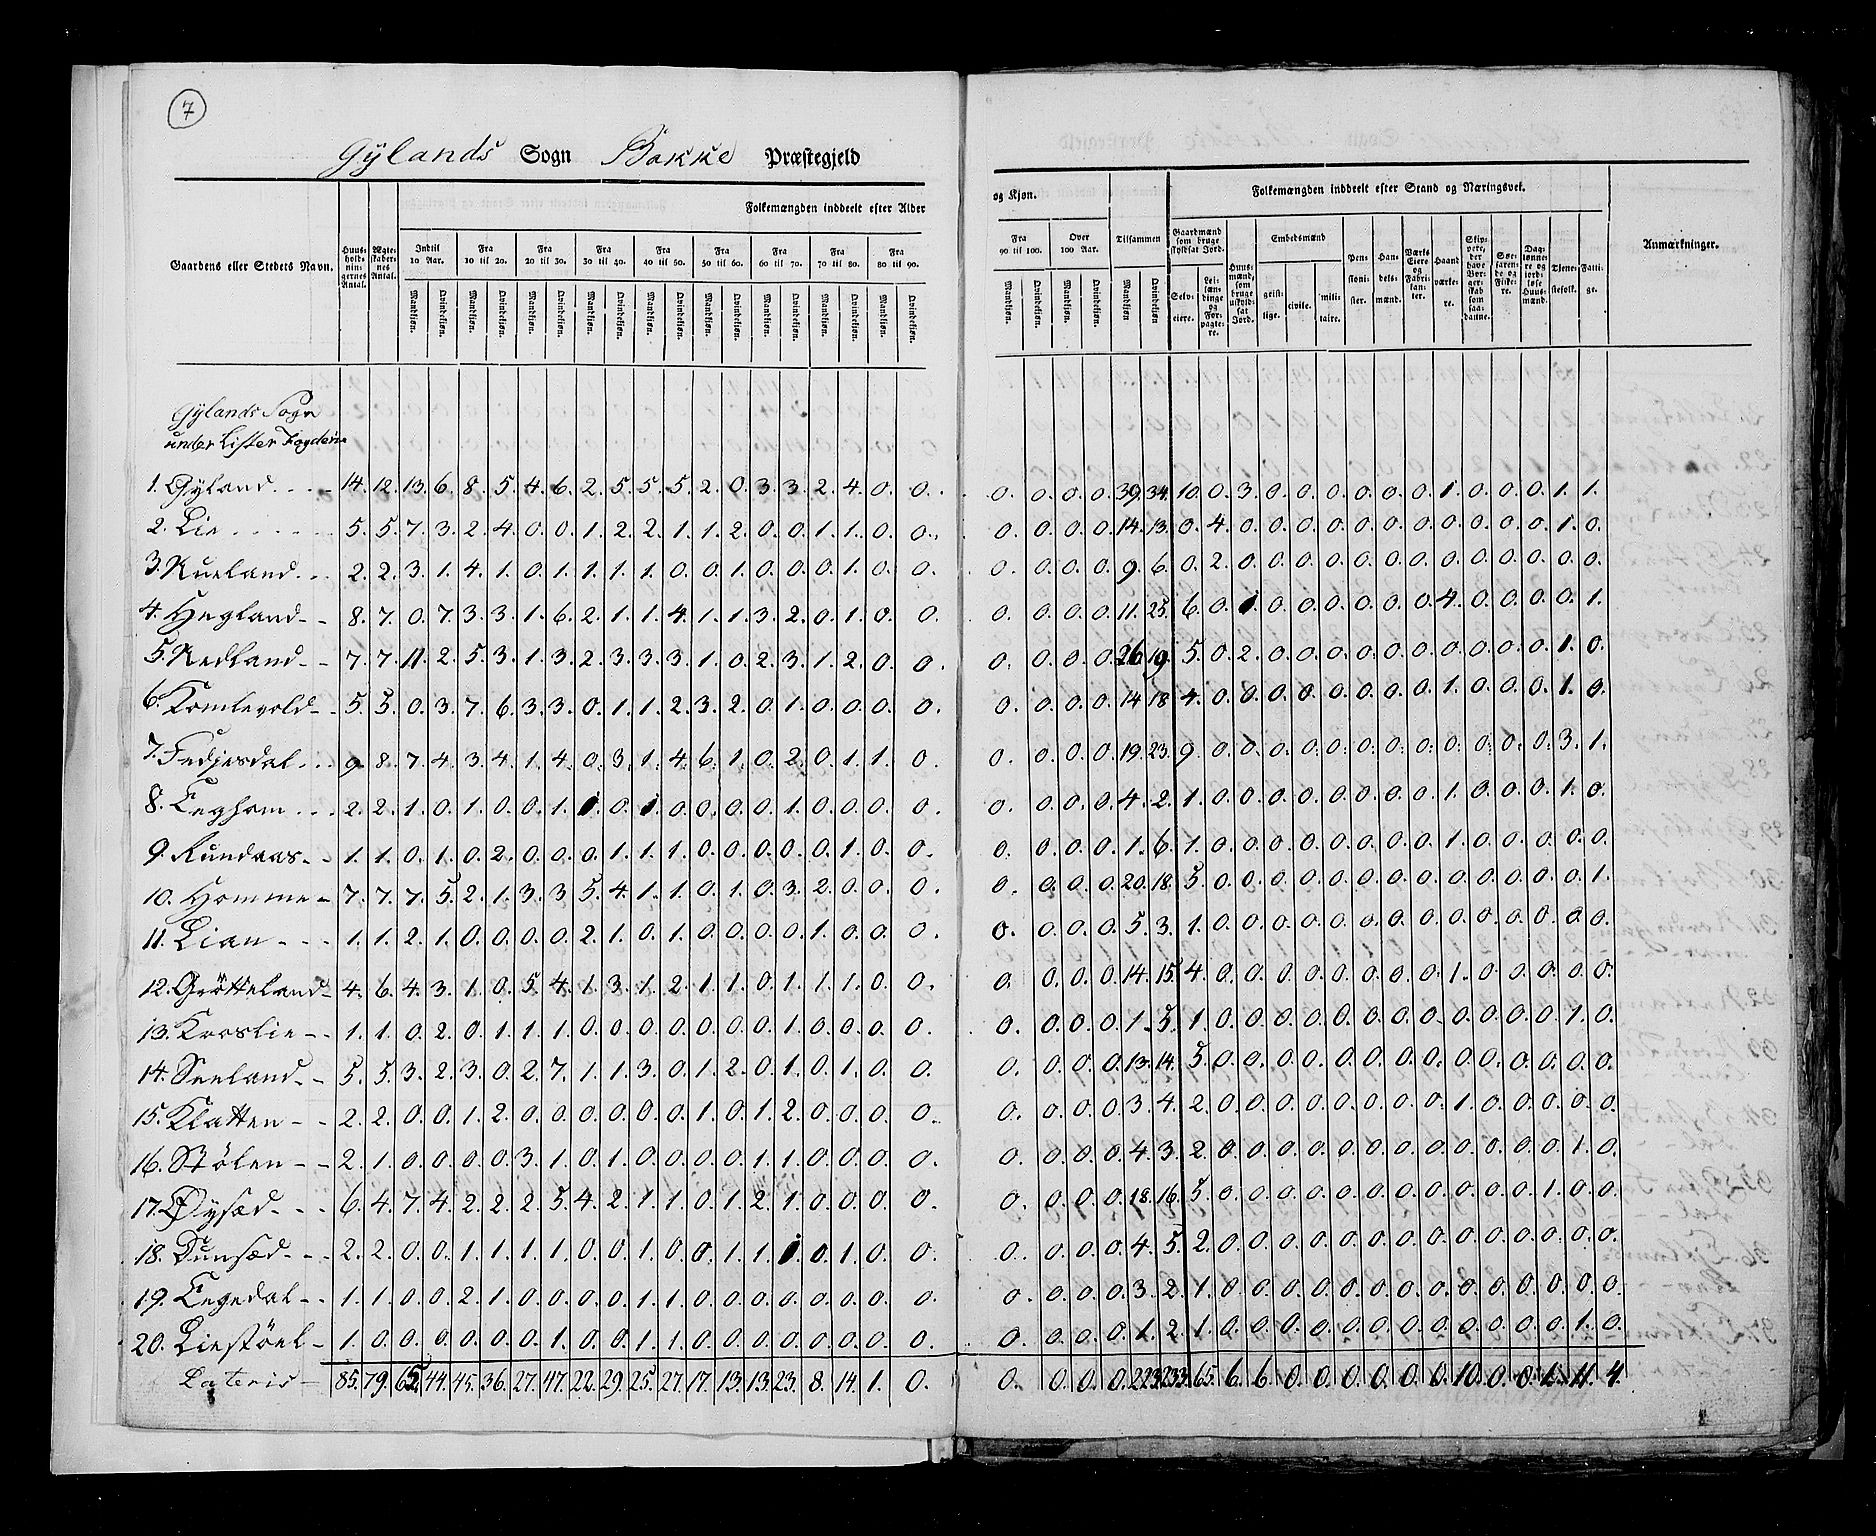 7
Gÿlands Sogn Bakke Præstegjeld
Folkemængden inddeelt efter Alder
og Kjøn.
Folkemængden inddeelt efter Stand og Næringsvei.
Gaardens eller Stedets Navn.
Huusholdningernes Antal.
Ægteskabernes Antal.
Indtil 10 Aar. Fra 10 til 20. Fra 20 til 30. Fra 30 til 40. Fra 40 til 50. Fra 50 til 60. Fra 60 til 70. Fra 70 til 80. Fra 80 til 90.
Fra 90 til 100. Over 100 Aar. Tilsammen
Mandkjøn. Qvindekjøn. Mandkjøn. Qvindekjøn. Mandkjøn. Qvindekjøn. Mandkjøn. Qvindekjøn. Mandkjøn. Qvindekjøn. Mandkjøn. Qvindekjøn. Mandkjøn. Qvindekjøn. Mandkjøn. Qvindekjøn. Mandkjøn. Qvindekjøn.
Mandkjøn. Qvindekjøn. Mandkjøn. Qvindekjøn. Mandkjøn Qvindekjøn
Gaardmænd som bruge skyldsat Jord.
Selveiere.
Leilændinge og Forpagtere.
Huusmænd, som bruge uskyldsat Jord.
Embedsmænd
geistlige. civile. militaire.
Pensionister.
Handelsmænd.
Værks Eiere og Fabrikanter.
Haandværkere.
Skippere, der have Borgerskab som saadanne.
Søefarende og Fiskere.
Daglønnere og jordløse Huusmænd.
Tjenestefolk.
Fattige.
Anmærkninger.
Gÿlands Sogn
under Lister Fogderie
1. Gÿland 14. 12. 13. 6. 8. 5. 4. 6. 2. 5. 5. 5. 2. 0. 3. 3. 2. 4. 0. 0. 0. 0. 0. 0. 39. 34. 10. 0. 3. 0. 0. 0. 0. 0. 0. 1. 0. 0. 0. 1. 1.
2. Lie 5. 5. 7. 3. 2. 4. 0. 0. 1. 2. 2. 1. 1. 2. 0. 0. 1. 1. 0. 0. 0. 0. 0. 0. 14. 13. 0. 4. 0. 0. 0. 0. 0. 0. 0. 0. 0. 0. 0. 1. 0.
3. Rueland 2. 2. 3. 1. 4. 1. 0. 1. 1. 1. 1. 0. 0. 1. 0. 0. 0. 1. 0. 0. 0. 0. 0. 0. 9. 6. 0. 2. 0. 0. 0. 0. 0. 0. 0. 0. 0. 0. 0. 0. 0.
4. Hegland 8. 7. 0. 7. 3. 3. 1. 6. 2. 1. 1. 4. 1. 1. 3. 2. 0. 1. 0. 0. 0. 0. 0. 0. 11. 25. 6. 0. 1 0. 0. 0. 0. 0. 0. 4. 0. 0. 0. 0. 1.
5. Redland 7. 7. 11. 2. 5. 3. 1. 3. 2. 3. 3. 3. 1. 0. 2. 3. 1. 2. 0. 0. 0. 0. 0. 0. 26 19. 5. 0. 2. 0. 0. 0. 0. 0. 0. 0. 0. 0. 0. 1. 0.
6. Komlevold 5. 5. 0. 3. 7. 6. 3. 3. 0. 1. 1. 2. 3. 2. 0. 1. 0. 0. 0. 0. 0. 0. 0. 0. 14 18 4. 0. 0. 0. 0. 0. 0. 0. 0. 1. 0. 0. 0. 1. 0.
7. Fedjesdal 9 8. 7. 4. 3. 4. 1. 4. 0. 3. 1. 4. 6. 1. 0. 2. 0. 1. 1. 0. 0. 0. 0. 0. 19. 23. 9. 0. 0. 0. 0. 0. 0. 0. 0. 0. 0. 0. 0. 3. 1.
8. Legham 2. 2. 1. 0. 1. 0. 0. 1. 1 0. 1. 0. 0. 0. 0. 1. 0. 0. 0. 0. 0. 0. 0. 0. 4. 2. 1. 0. 0. 0. 0. 0. 0. 0. 0. 1. 0. 0. 0. 1. 0.
9. Rundaas 1. 1. 0. 1. 0. 2. 0. 0. 0. 1. 1. 1. 0. 0. 0. 0. 0. 1. 0. 0. 0. 0. 0. 0. 1. 6. 1. 0. 0. 0. 0. 0. 0. 0. 0. 1. 0. 0. 0. 0. 0.
10. Homme 7. 7. 7. 5. 2. 1. 3. 3. 5. 4. 1. 1. 0. 1. 0. 3. 2. 0. 0. 0. 0. 0. 0. 0. 20. 18. 5. 0. 0. 0. 0. 0. 0. 0. 0. 0. 0. 0. 0. 0. 1.
11. Lian 1. 1. 2. 1. 0. 0. 0. 0. 2. 1. 0. 1. 0. 0. 0. 0. 1. 0. 0. 0. 0. 0. 0. 0. 5. 3. 1. 0. 0. 0. 0. 0. 0. 0. 0. 0. 0. 0. 0. 0. 0.
12. Grötteland 4. 6. 4. 3. 1. 0. 5. 4. 1. 3. 1. 2. 1. 1. 0. 1. 1. 1. 0. 0. 0. 0. 0. 0. 14. 15. 4. 0. 0. 0. 0. 0. 0. 0. 0. 1. 0. 0. 0. 0. 0.
13. Kroslie 1. 1. 0. 2. 0. 1. 1. 1. 0. 0. 0. 0. 0. 0. 0. 1. 0. 0. 0. 0. 0. 0. 0. 0. 1. 5. 1. 0. 0. 0. 0. 0. 0. 0. 0. 0. 0. 0. 0. 1. 0.
14. Seeland 5. 5. 3. 2. 3. 0. 2. 7. 1. 1. 3. 0. 1. 2. 0. 1. 0. 1. 0. 0. 0. 0. 0. 0. 13. 14. 5. 0. 0. 0. 0. 0. 0. 0. 0. 0. 0. 0. 0. 0. 0.
15. Klatten 2. 2. 0. 0. 1. 2. 0. 0. 0. 0. 0. 0. 1. 0. 1. 2. 0. 0. 0. 0. 0. 0. 0. 0. 3. 4. 2. 0. 0. 0. 0. 0. 0. 0. 0. 1. 0. 0. 0. 0. 0.
16. Stölen 2. 1. 0. 0. 0. 0. 3. 1. 0. 1. 0. 0. 0. 0. 1. 1. 0. 0. 0. 0. 0. 0. 0. 0. 4. 3. 2. 0. 0. 0. 0. 0. 0. 0. 0. 0. 0. 0. 0. 1. 0.
17. Øysæd 6. 4. 7. 4. 2. 2. 2. 5. 4. 2. 1. 1. 0. 1. 2. 1. 0. 0. 0. 0. 0. 0. 0. 0. 18. 16. 5. 0. 0. 0. 0. 0. 0. 0. 0. 0. 0. 0. 1. 0. 0.
18. Dunsæd 2. 2. 0. 0. 1. 1. 1. 1. 0. 0. 1. 0. 0. 1. 1. 1 0. 1. 0. 0. 0. 0. 0. 0. 4. 5. 2. 0. 0. 0. 0. 0. 0. 0. 0. 0. 0. 0. 0. 0. 0.
19. Legedal 1. 1. 0. 0. 2. 1. 0. 0. 0. 0. 1. 1. 0. 0. 0. 0. 0. 0. 0. 0. 0. 0. 0. 0. 3. 2. 1. 0. 0. 0. 0. 0. 0. 0. 0. 0. 0. 0. 0. 0. 0.
20. Liestöel 1. 0. 0. 0. 0. 0. 0. 1. 0. 0. 1. 1. 0. 0. 0. 0. 0. 0. 0. 0. 0. 0. 0. 0. 1. 2. 1. 0. 0. 0. 0. 0. 0. 0. 0. 0. 0. 0. 0. 1. 0.
Lateris 85. 79. 65. 44. 45. 36. 27. 47. 22. 29. 25. 27. 17. 13. 13. 23. 8. 14. 1. 0. 0. 0. 0. 0. 223. 233. 65. 6. 6. 0. 0. 0. 0. 0. 0. 10. 0. 0. 1. 11. 4.